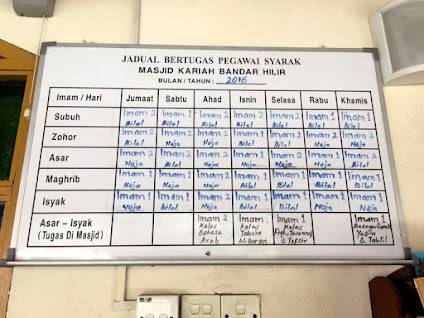 JADUAL BERTUGAS PEGAWAI SYARAK
MASJID KARIAH BANDAR HILIR
BULAN / TAHUN : 2015
Imam / Hari Jumaat Sabtu Ahad Isnin Selasa Rabu Khamis
Subuh Imam 2 Imam 1 Imam 2 Imam 1 Imam 2 Imam 1 Imam 1
Bilal Bilal Bilal Bilal Bilal Bilal Bilal
Zohor Imam 2 Imam 1 Imam 2 Imam 1 Imam 2 Imam 1 Imam 2
Bilal Noja Noja Noja Noja Noja Noja
Asar Imam 2 Imam 1 Imam 2 Imam 1 Imam 2 Imam 1 Imam 2
Noja Noja Noja Noja Noja Noja Noja
Maghrib Imam 1 Imam 2 Imam 2 Imam 1 Imam 1 Imam 2 Imam 1
Noja Noja Bilal Bilal Bilal Bilal Noja
Isyak Imam 1 Imam 2 Imam 2 Imam 1 Imam 1 Imam 2 Imam 1
Noja Bilal Bilal Bilal Bilal Bilal Noja
Asar – Isyak Imam 2 Imam Imam 1 Imam 1
(Tugas Di Masjid) Kelas Kelas Kelas
Bahasa Tahsin Yasin
Arab Al-Quran & Tafsir & Tahlil